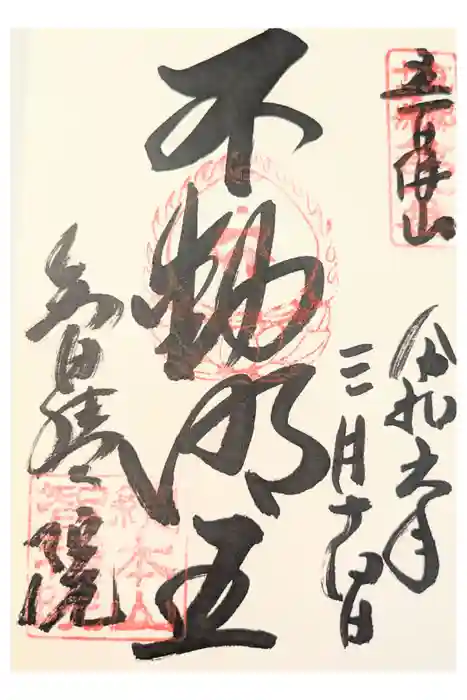 五百佛山
令和 年
三月十 日
不動明王
智積院